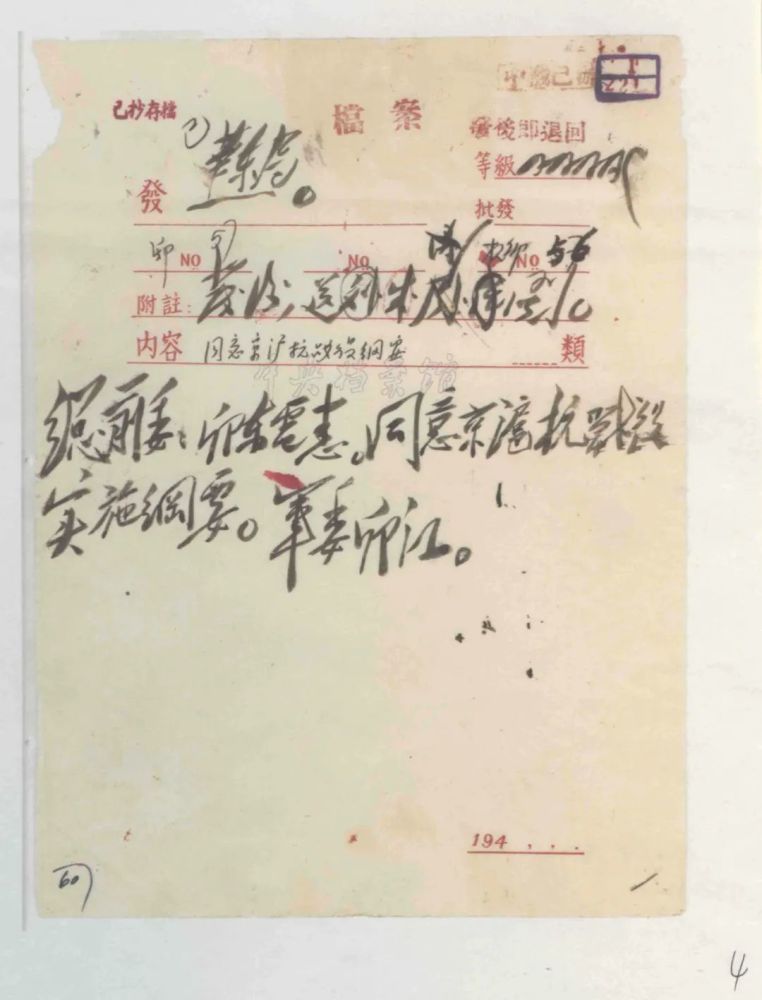 已抄存檔
檔案
發後即退回
等級
發
批發
NO NO NO 56
附註:
内容 同意京沪杭战役纲要 類
中央档案馆
總前委:卯東電悉。同意京滬杭戰役
实施綱要。軍委卯江。
194 , , .
60
4